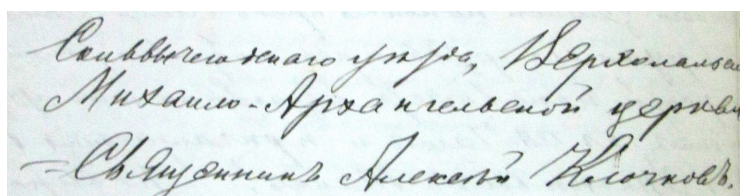 Сольвычегодскаго уѣзда, Верхолальской
Михаило-Архангельской церкви
Священникъ Алексѣй Клочковъ.